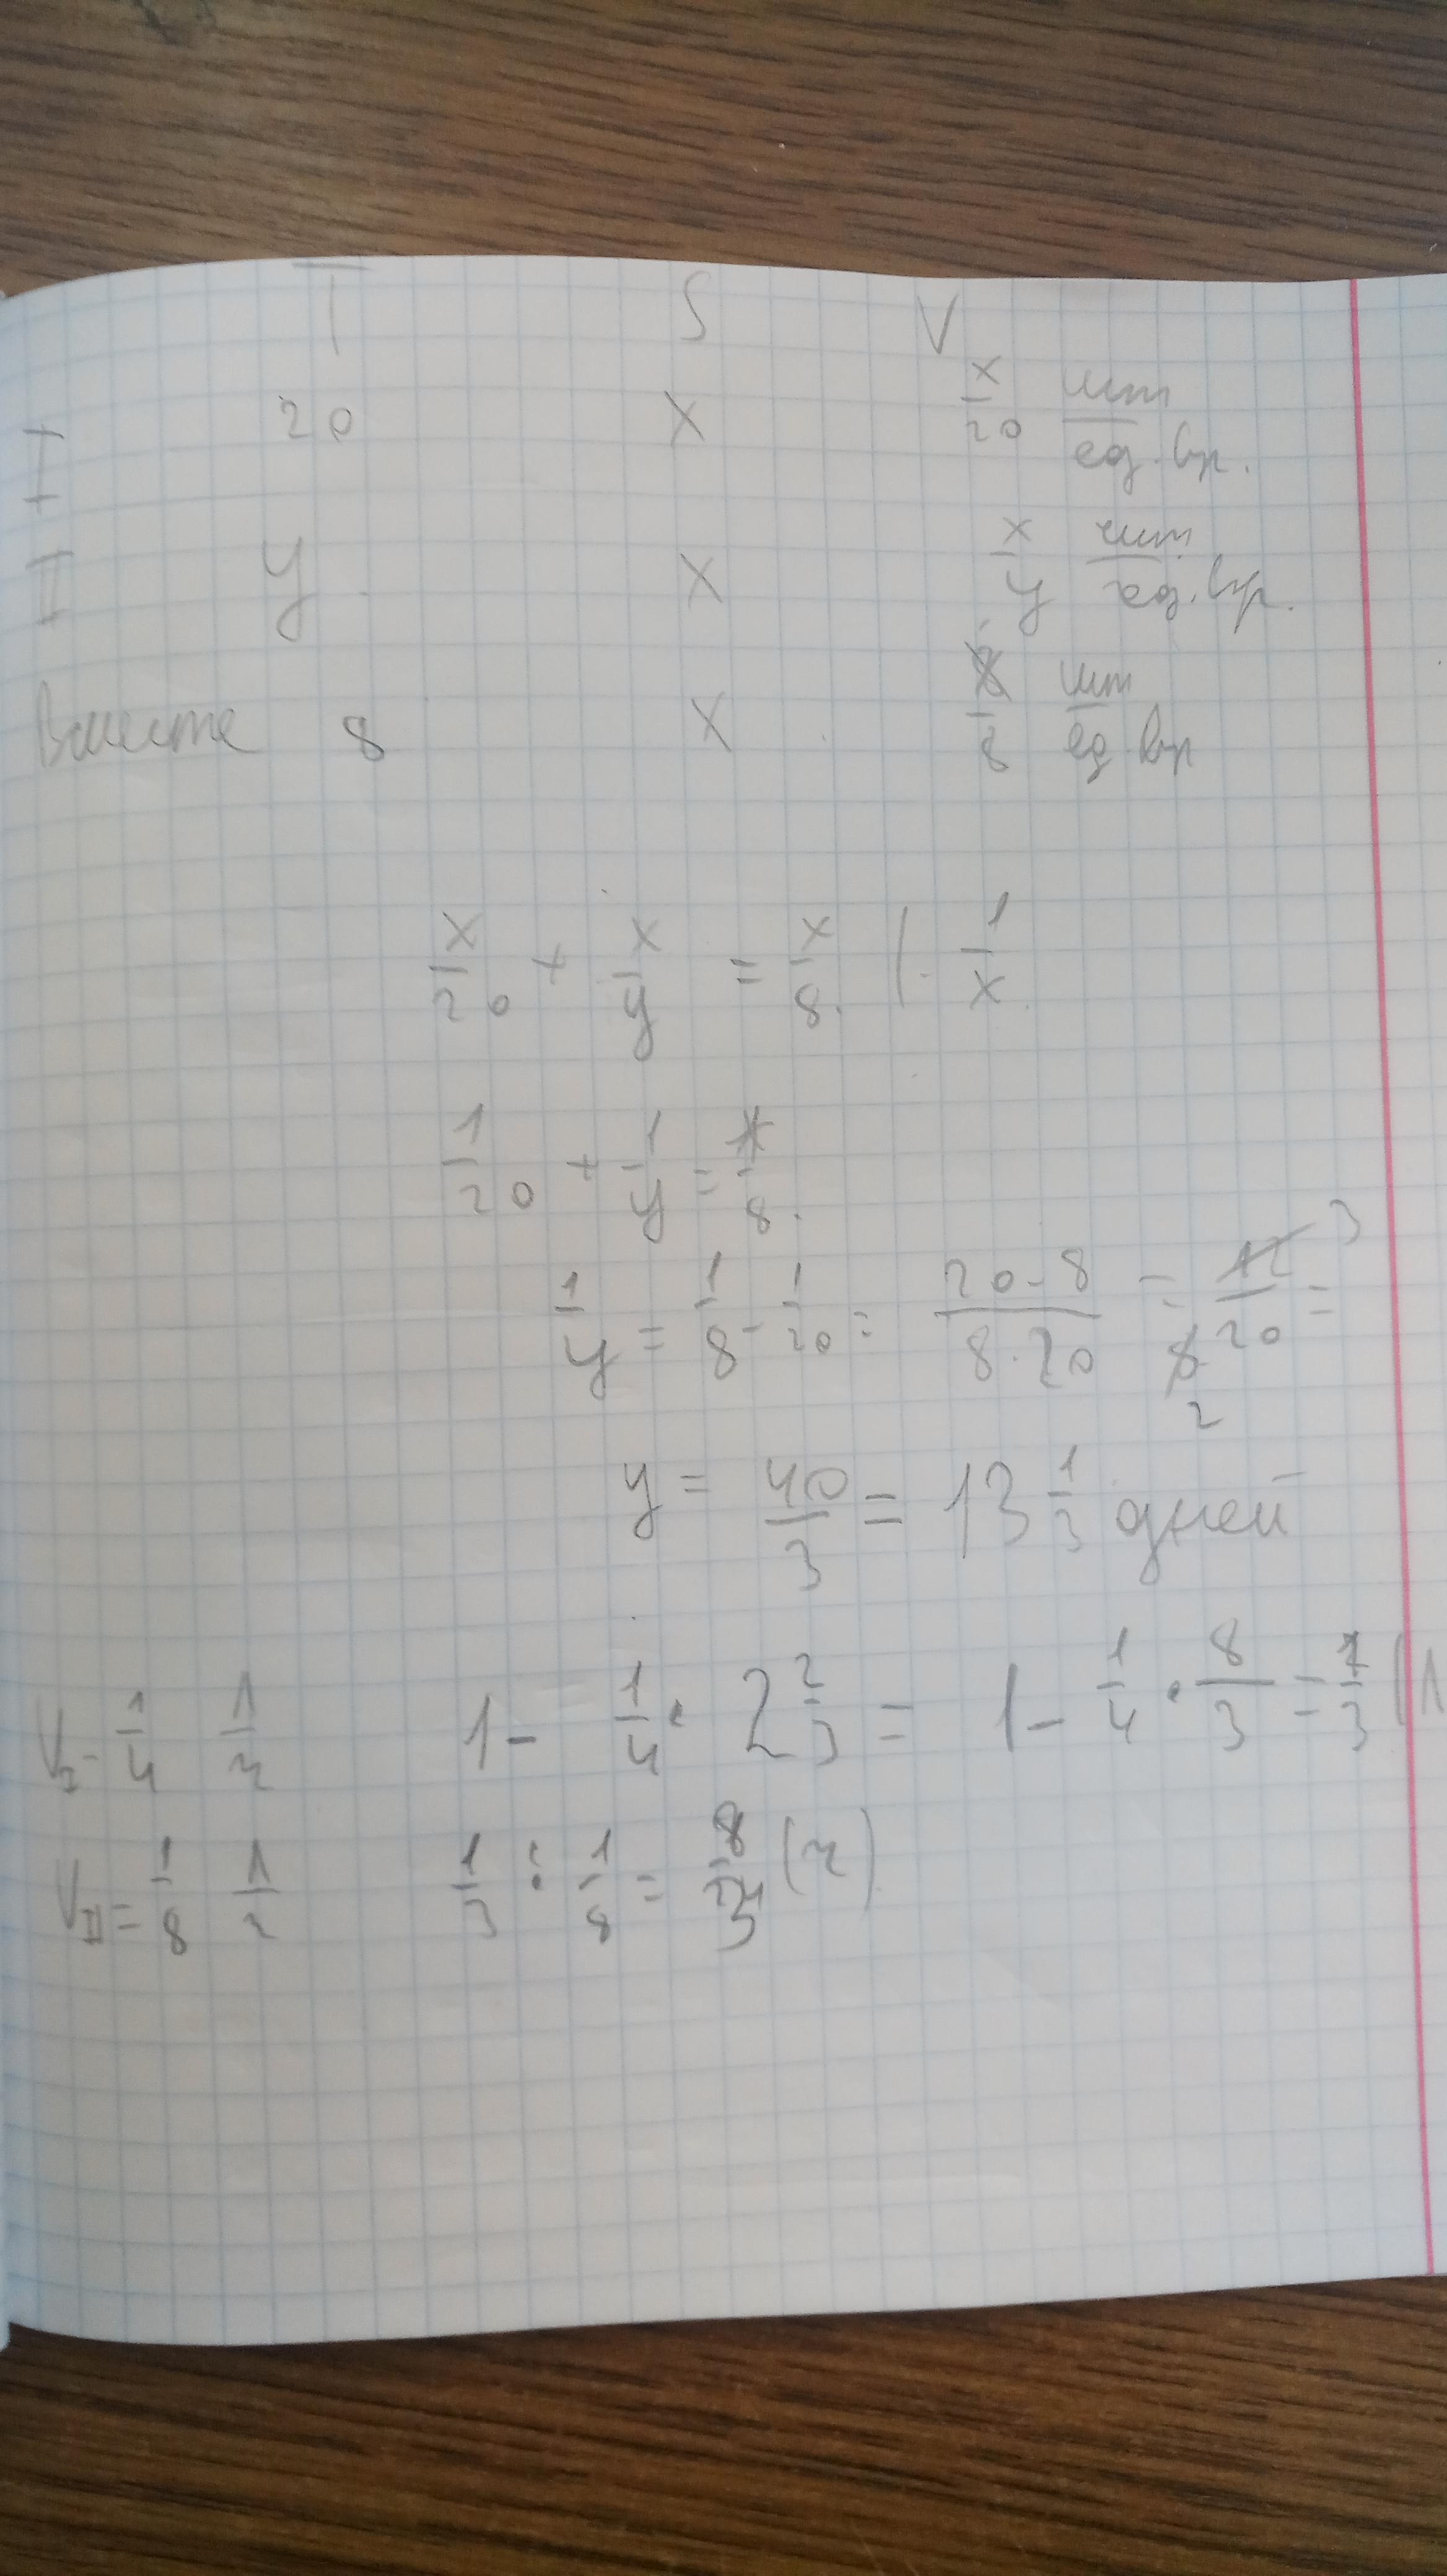 T S V
I 20 x x/20 шт/ед.вр.
II y x x/y шт/ед.вр.
Вместе 8 x x/8 шт/ед вр
x/20 + x/y = x/8 | · 1/x
1/20 + 1/y = 1/8.
1/y = 1/8 - 1/20 = (20-8)/(8·20) = 12/(8·20) = 3 2
y = 40/3 = 13 1/3 дней
V_I - 1/4 1/ч 1 - 1/4 · 2 2/3 = 1 - 1/4 · 8/3 = 1/3 (
V_II = 1/8 1/ч 1/3 : 1/8 = 8/3 (ч)